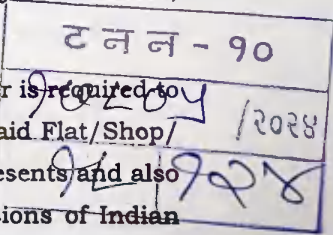 टनन - १०
er is required to
१०८०५ /२०२४
aid Flat/Shop/
esents and also
१८ १२४
sions of Indian